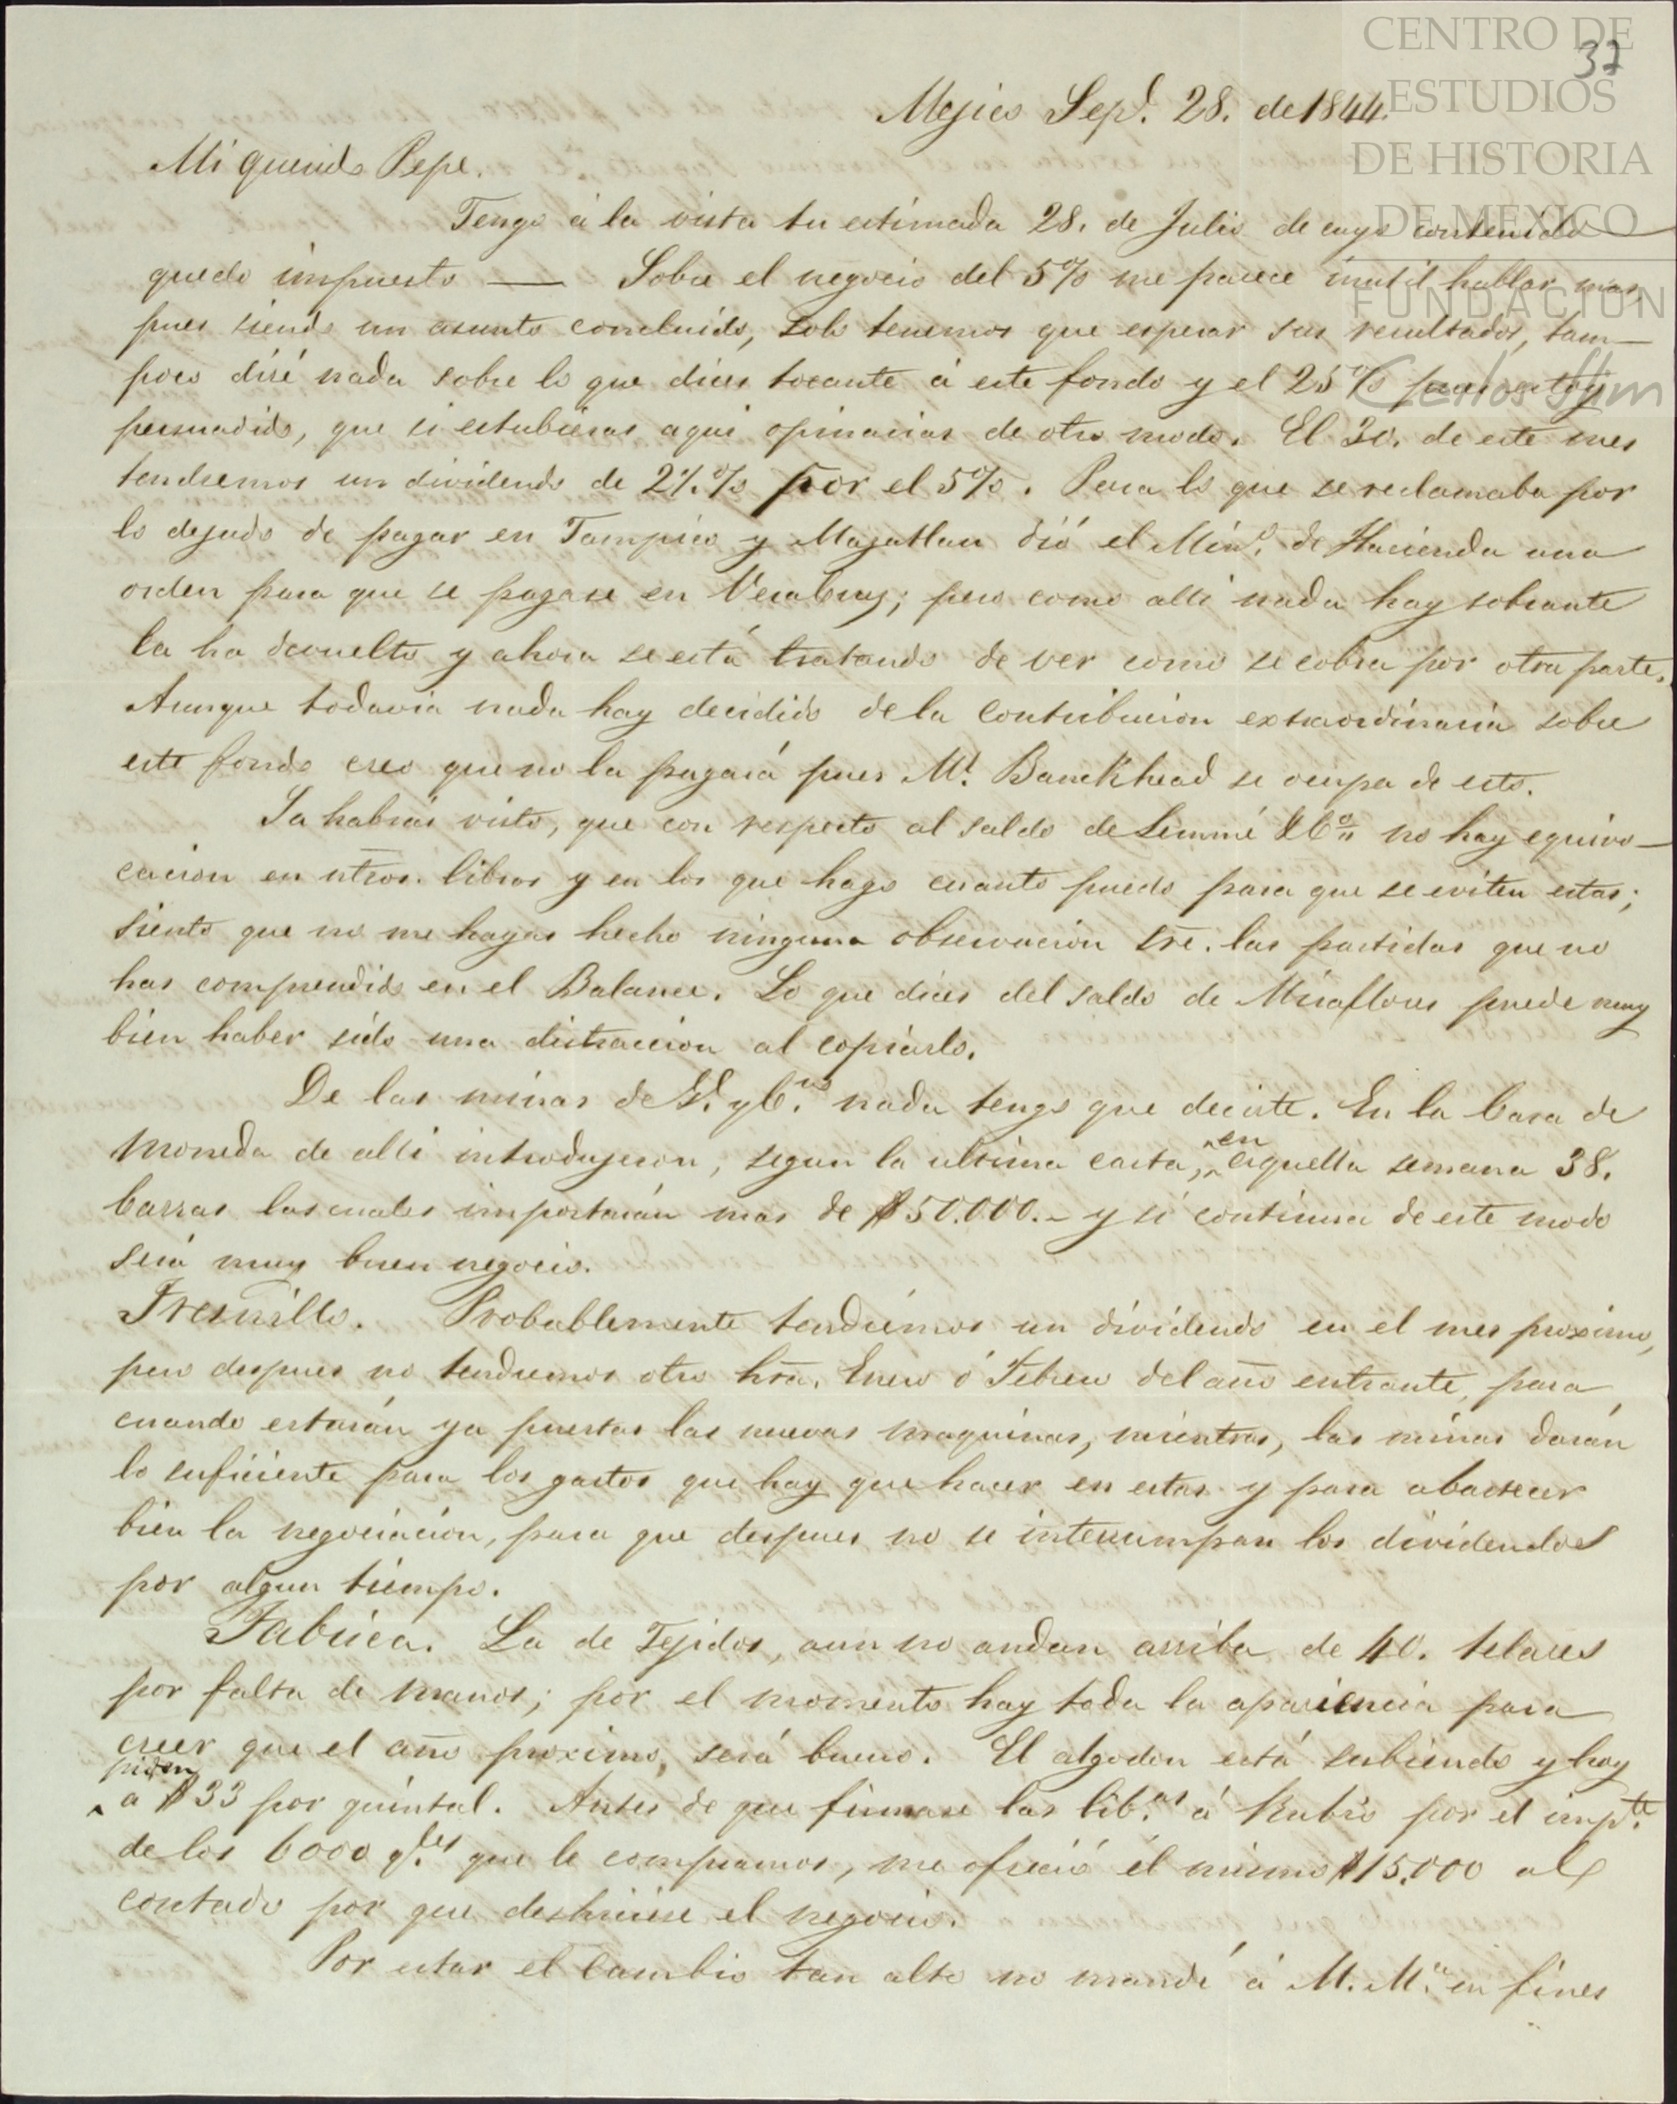 CENTRO DE
ESTUDIOS
DE HISTORIA
DE MÉXICO
FUNDACIÓN
Carlos Slim
37
Mejico Sep.e 28. de 1844.
Mi querido Pepe.
Tengo á la vista tu estimada 28. de Julio de cuyo contenido
quedo impuesto — Sobre el negocio del 5% me parece inutil hablar mas,
pues siendo un asunto concluido, solo tenemos que esperar sus resultados, tam-
poco diré nada sobre lo que dices tocante á este fondo y el 25% pues estoy
persuadido, que si estubieras aqui opinarias de otro modo. El 30. de este mes
tendremos un dividendo de 2%.% por el 5%. Para lo que se reclamaba por
lo dejado de pagar en Tampico y Mazatlan dió el Min.o de Hacienda una
orden para que se pagase en Veracruz; pero como alli nada hay sobrante
la ha devuelto y ahora se está tratando de ver como se cobra por otra parte.
Aunque todavia nada hay decidido de la contribucion extraordinaria sobre
este fondo creo que no la pagará pues Mr. Banckhead se ocupa de esto.
Ya habrás visto, que con respecto al saldo de Lemmé &Co no hay equivo-
cacion en ntros. libros y en los que hago cuanto puedo para que se eviten estas;
siento que no me hayas hecho ninguna observacion sre. las partidas que no
has comprendido en el Balance. Lo que dices del saldo de Miraflores puede muy
bien haber sido una distraccion al copiarlo.
De las minas de G. y C.as nada tengo que decirte. En la Casa de
Moneda de alli introdujeron, segun la ultima carta, en aquella semana 38.
barras las cuales importarán mas de $50.000.- y si continua de este modo
será muy buen negocio.
Fresnillo. Probablemente tendrémos un dividendo en el mes proximo,
pero despues no tendremos otro hta. Enero ó Febrero del año entrante, para
cuando estarán ya puestas las nuevas maquinas, mientras, las minas darán
lo suficiente para los gastos que hay que hacer en estas y para abastecer
bien la negociacion, para que despues no se interrumpan los dividendos
por algun tiempo.
Fabrica. La de Tejidos, aun no andan arriba de 40. telares
por falta de manos; por el momento hay toda la apariencia para
creer que el año proximo, será bueno. El algodon está subiendo y hoy
piden
a $33 por quintal. Antes de que firmase las lib.as á Rubio por el imp.te
de los 6000 q.les que le compramos, me ofreció él mismo $15.000 al
contado por que deshiciese el negocio.
Por estar el Cambio tan alto no mandé á M. M. en fines